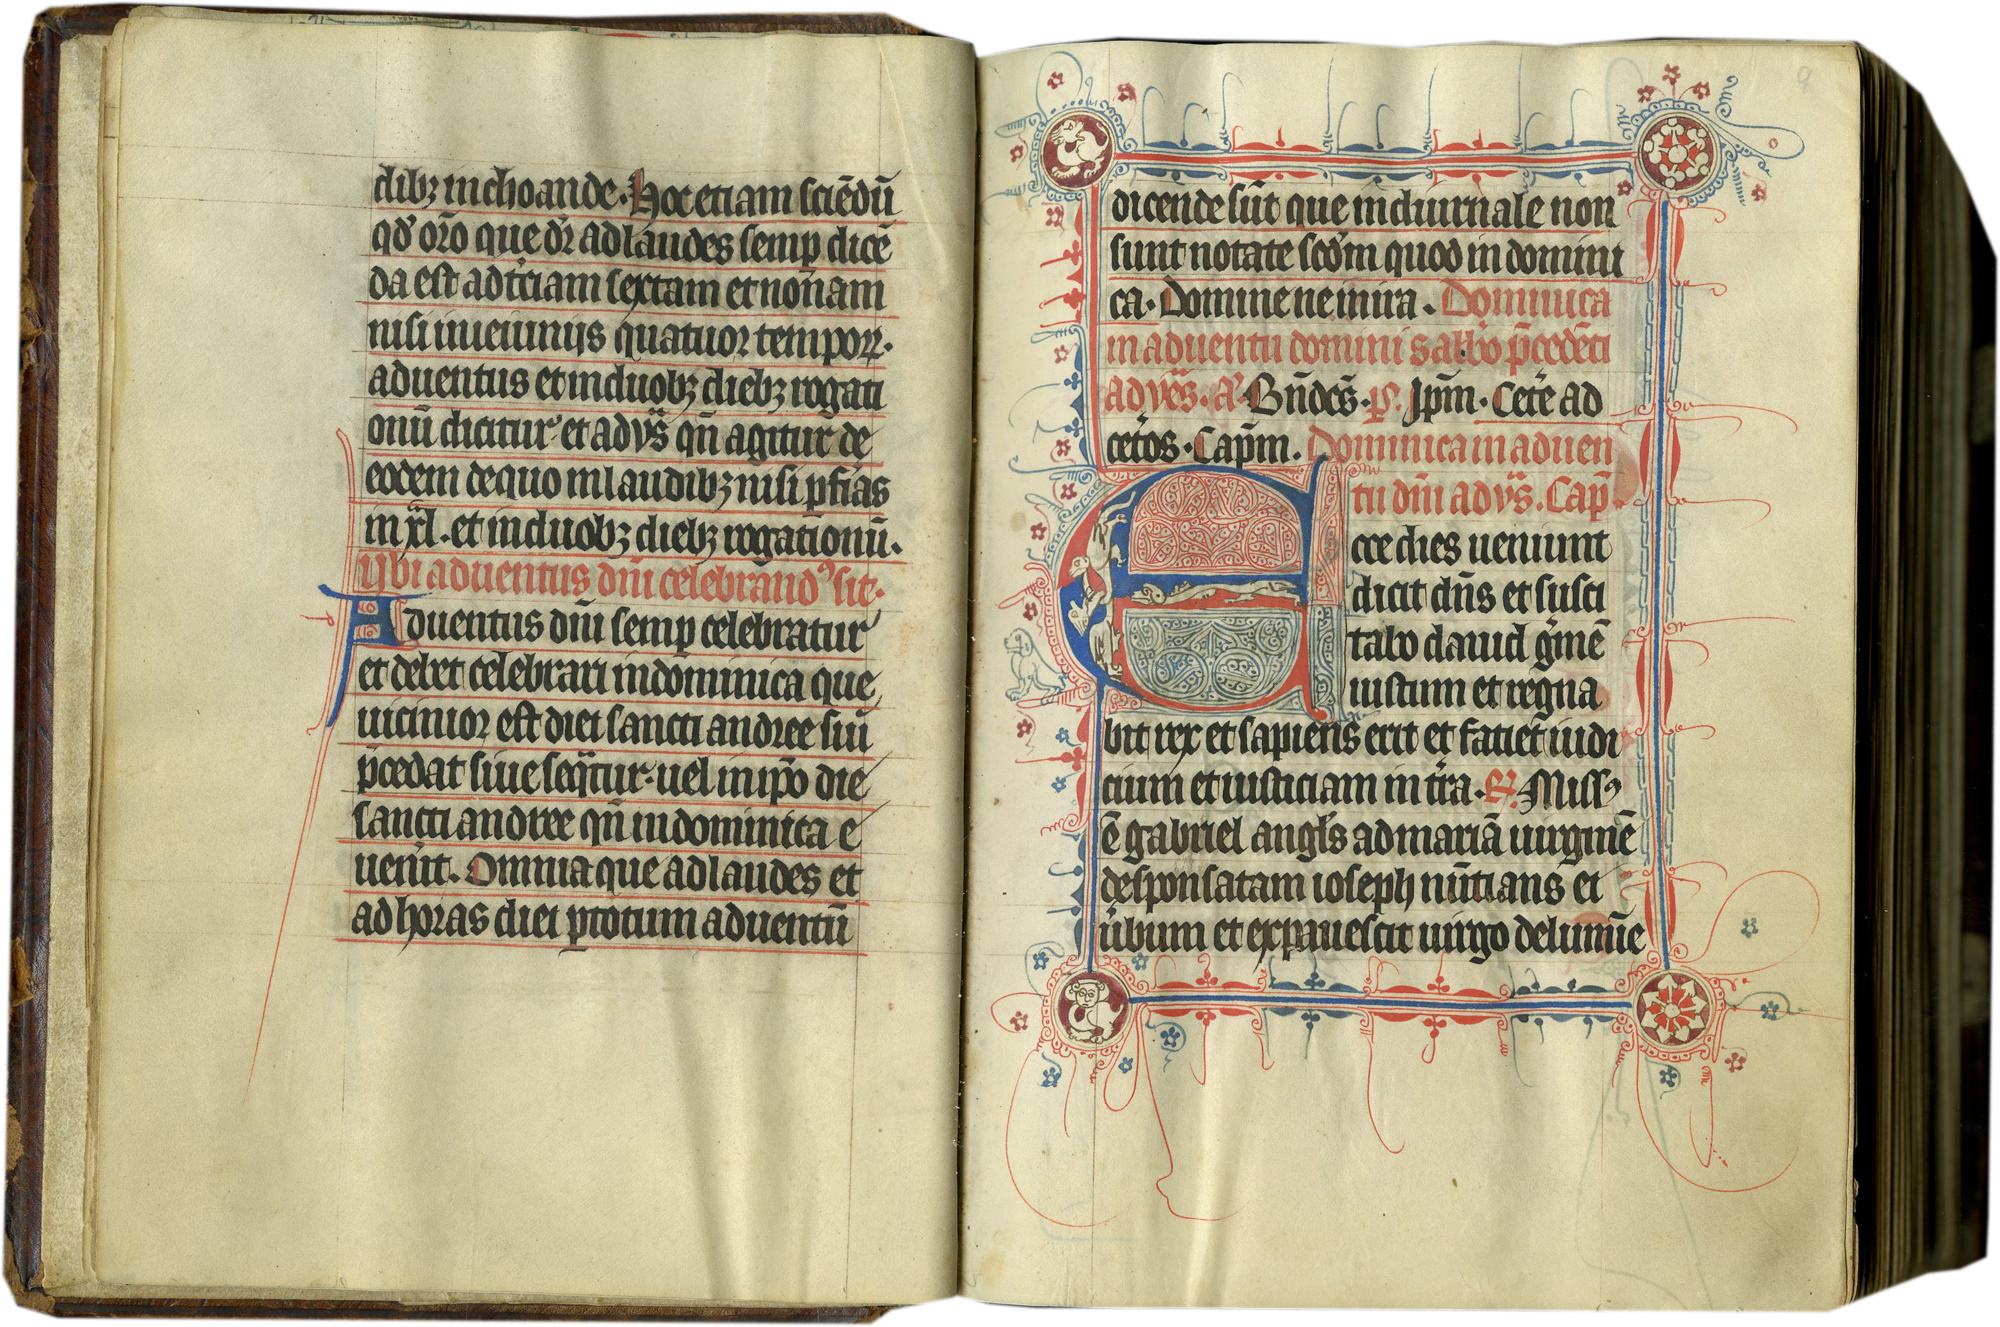 dibꝫ inchoande. Hoc etiam sciēdū
qđ oro̅ que dr̄ ad laudes semꝑ dicē
da est ad t̓ciam sextam et nonam
nisi in ieiuniis quatuor temporꝝ.
aduentus et in duobꝫ diebꝫ rogati
onū dicitur et ad vs̄ qn̄ agitur de
eodem de quo in laudibꝫ nisi ꝑ fīas
in xl. et in duobꝫ diebꝫ rogationū.
Ubi aduentus dn̄i celebrandꝰ sit.
Aduentus dn̄i semꝑ celebratur
et debet celebrari in dominica que
uicinior est diei sancti andree siu̅
p̄cedat siue seq̄tur. uel in ip̄o die
sancti andree qn̄ in dominica e
uen̓it. Omnia que ad laudes et
ad horas diei ꝑ totum aduentū
9
dicende sūt que in diurnale non
sunt notate scđm quod in domini
ca. Domine ne in ira. Dominica
in aduentu domini sabb̄o p̄cedēti
ad vēs. a̅. Bn̄dcs̄. p̄. Ip̄m. Cet̓e ad
cet̓os. Cap̄m. Dominica in aduen
tu dn̄i ad vs̄. Cap̄.
Ecce dies ueniunt
dicit dn̄s et susci
tabo dauid g̓mē
iustum et regna
bit rex et sapiens erit et faciet iudi
cium et iusticiam in t̓ra. R̄. Missꝰ
ē gabriel angl̄s ad mariā uirginē
desponsatam ioseph nūtians ei
u̓bum et expauescit uirgo de lumīe